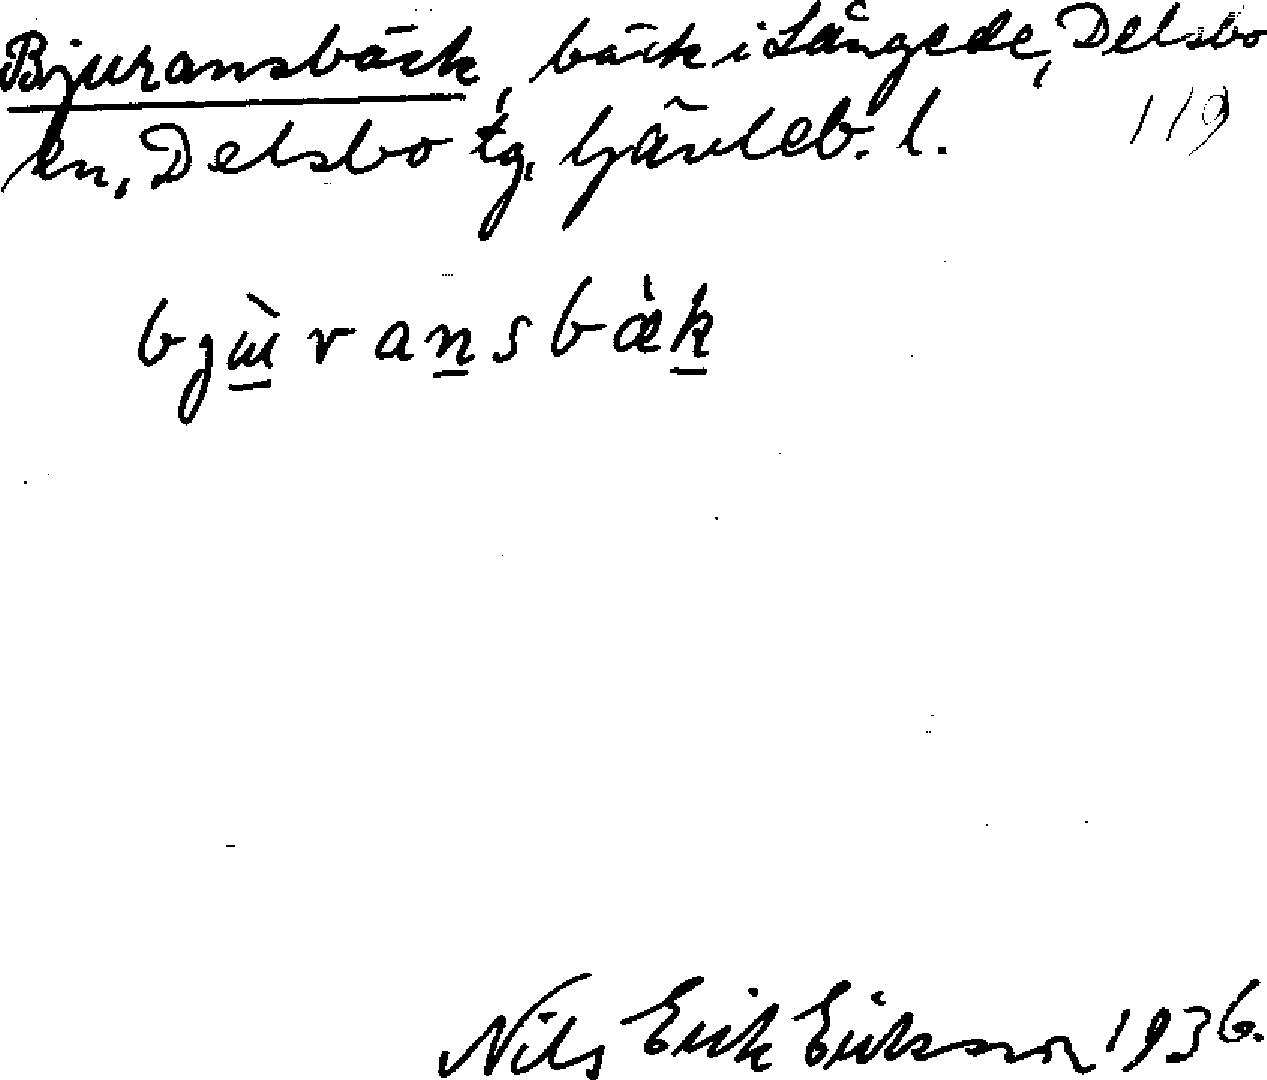 Bjuransbäck, bäck i Långede, Delsbo
sn, Delsbo tg, Gävleb. l.
119
bjɯ̀ransbæ̀k
Nils Erik Eriksson 1936.